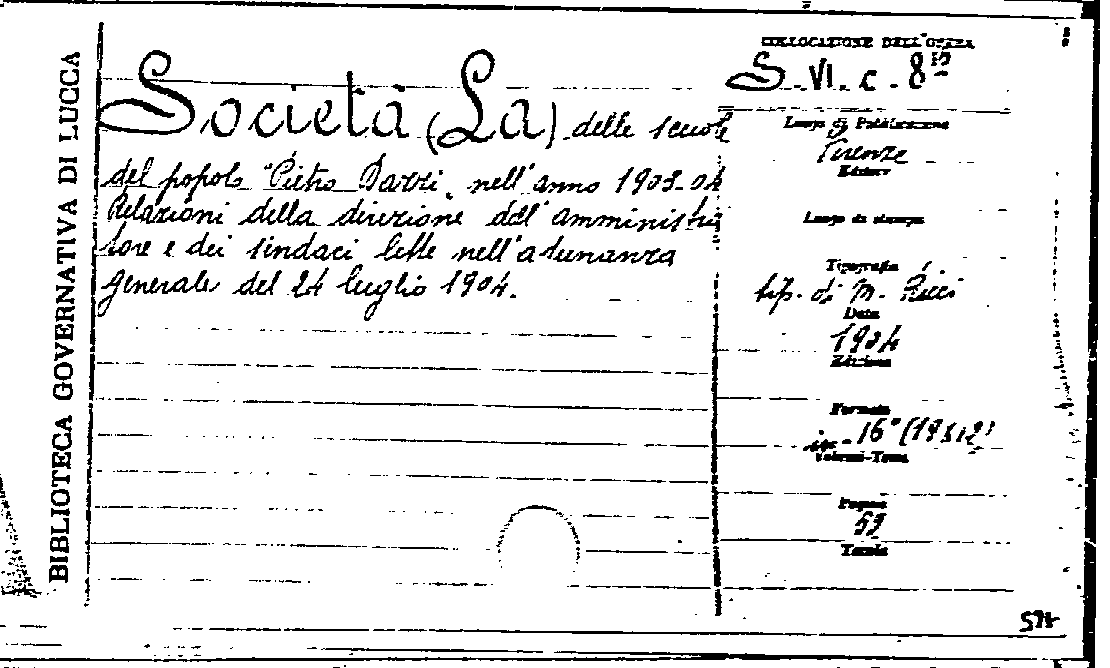 BIBLIOTECA GOVERNATIVA DI LUCCA
Società (La) delle scuole
del popolo "Pietro Dazzi" nell'anno 1903-04
Relazioni della direzione dell'amministra
tore e dei sindaci lette nell'adunanza
generale del 24 luglio 1904.
COLLOCAZIONE DELL'OPERA
S. VI. c. 8
Luogo di Pubblicazione
Firenze
Editore
Luogo di stampa
Tipografia
tip. di M. Ricci
Data
1904
Edizione
Formato
in-16° (19x12)
Volumi-Tomi
Pagine
Tavole